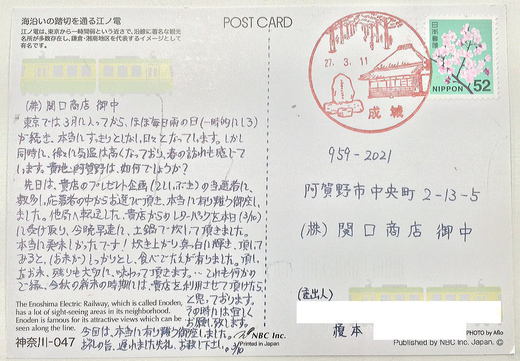 海沿いの踏切を通る江ノ電
江ノ電は、東京から一時間弱という近さで、沿線に著名な観光
名所が多数存在し、鎌倉・湘南地区を代表するイメージとして
有名です。
POST CARD
27. 3. 11
成城
日本郵便
NIPPON 52
(株) 関口商店 御中
東京では3月に入ってから、ほぼ毎日雨の日(一時的にしろ)
が続き、本当にすっきりとしない日々となっています。しかし
同時に、徐々に気温は高くなっており、春の訪れも感じて
います。貴地・阿賀野は、如何でしょうか?
先日は、貴店のプレゼント企画(こしいぶき)の当選者に、
数多い応募者の中からお選び頂き、本当に有り難う御座い
ました。他局に転送した、貴店からのレターパックを本日(3/10)
に受け取り、今晩早速に、土鍋で炊いて頂きました。
本当に美味しかったです! 炊き上がり真っ白に輝き、頂いて
みると、(お米が)しっかりとし、食べでたんが有りました。頂い
たお米、残りも大切に、味わって頂きます。これも何かの
ご縁、今秋の新米の時期には、貴店を利用させて頂けたら
と思っております。
その時には宜しく
お願い致します。
今回は、本当に有り難う御座いました。
お礼の旨、遅れました失礼、お赦し下さい。 3/10
959-2021
阿賀野市中央町 2-13-5
(株) 関口商店 御中
(差出人)
榎本
The Enoshima Electric Railway, which is called Enoden,
has a lot of sight-seeing areas in its neighborhood.
Enoden is famous for its attractive views which can be
seen along the line.
神奈川-047
NBC Inc.
Printed in Japan
PHOTO by Aflo
Published by NBC Inc. Japan